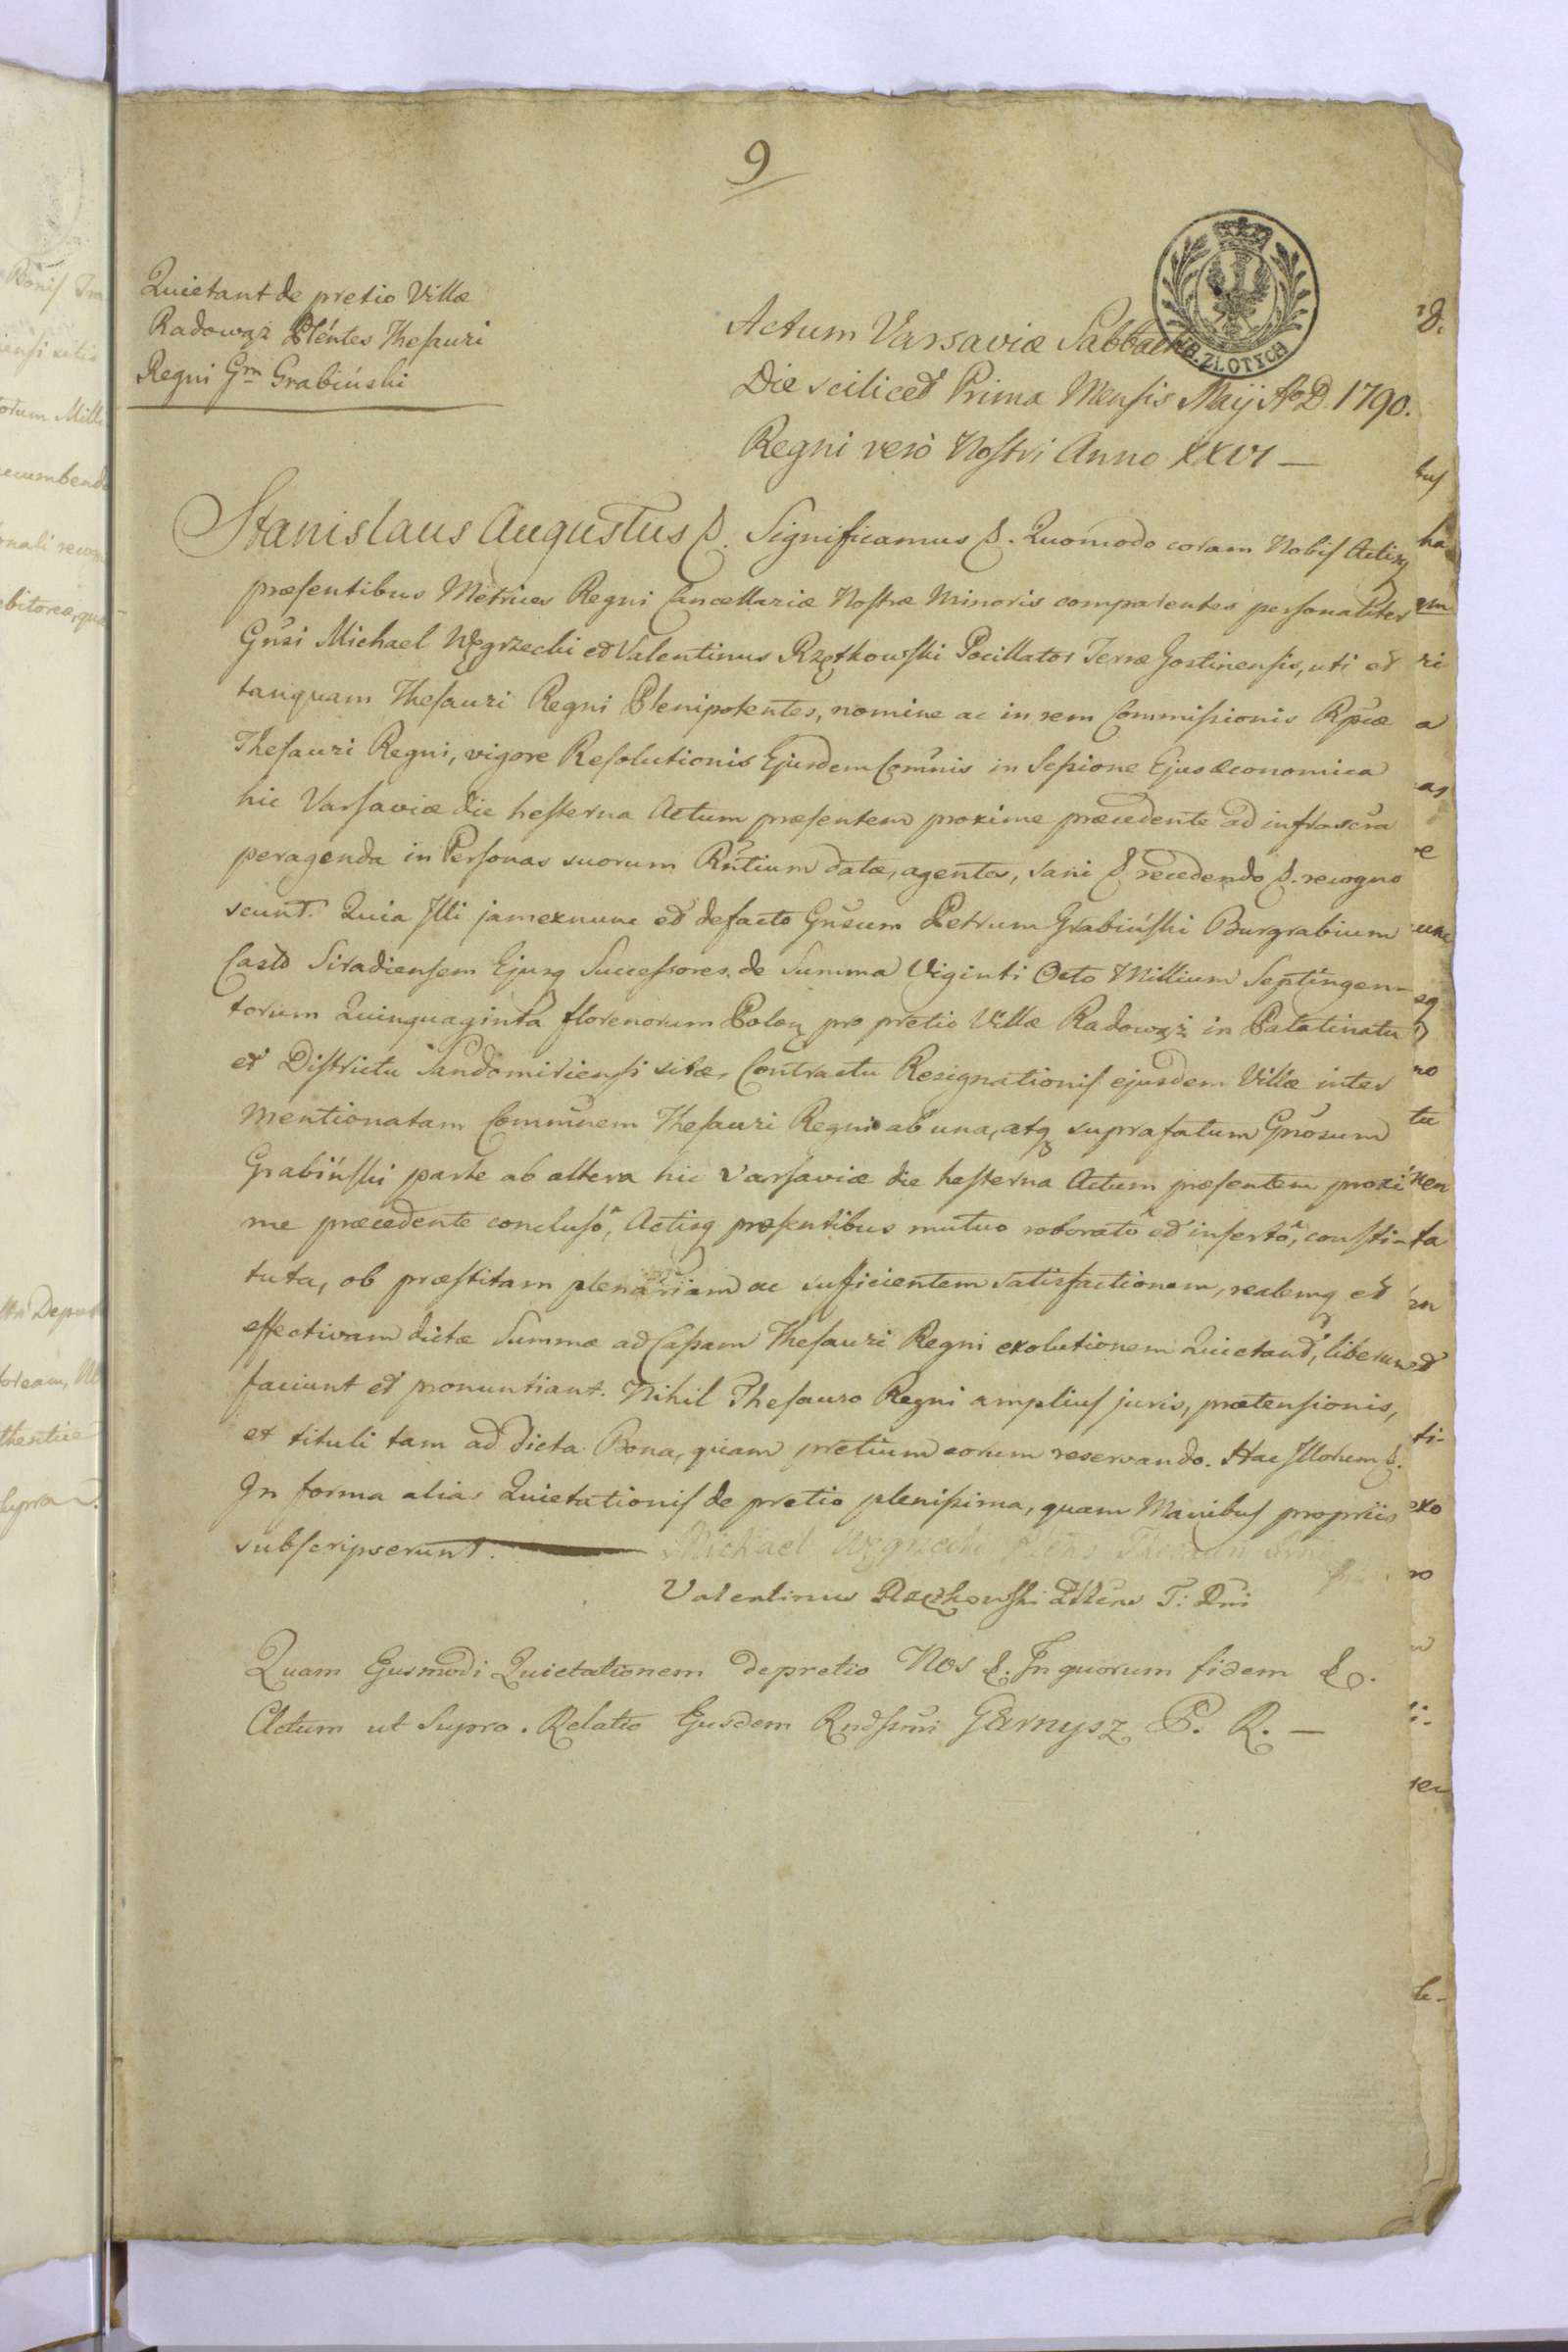 9
Quietant de pretio Villæ
Radowąż Plẽntes Thesauri
Regni Grm Grabiński
Actum Varsaviæ Sabbatho
Die scilicet Prima Mensis Maÿ AoD. 1790.
Regni verò Nostri Anno XXVI —
ZŁOTYCH
Stanislaus Augustus &. Significamus &. Quomodo coram Nobis Actisq
præsentibus Metrices Regni Cancellariæ Nostræ Minoris comparentes personaliter
Gnsi Michael Węgrzecki et Valentinus Rzętkowski Pocillator Terræ Gostinensis, uti et
tanquam Thesauri Regni Plenipotentes, nomine ac in rem Commissionis Rpcæ
Thesauri Regni, vigore Resolutionis Ejusdem Comñis in Sessione Ejus Œconomica
hic Varsaviæ die hesterna Actum præsentem proxime præcedente ad infrascra
peragenda in Personas suorum Rñtium datæ, agentes, sani &. recedendo &. recogno
scunt. Quia Illi jam exnunc et defacto Gnsum Petrum Grabiński Burgrabium
Castr Siradiensem Ejusq Successores, de Summa Viginti Octo Millium Septingen-
torum Quinquaginta florenorum Polon pro pretio Villæ Radowąż in Palatinatu
et Districtu Sandomiriensi sitæ, Contractu Resignationis ejusdem Villæ inter
mentionatam Commũnem Thesauri Regni ab una, atq suprafatum Gnosum
Grabiński parte ab altera hic Varsaviæ die hesterna Actum præsentem proxi
me præcedente conclusô, Actisq præsentibus mutuo roboratô et insertô, consti-
tuta, ob præstitam plenariam ac sufficientem satisfactionem, realemq et
effectivam dictæ Summæ ad Cassam Thesauri Regni exolutionem Quietant, liberum
faciunt et pronuntiant. Nihil Thesauro Regni amplius juris, prætensionis,
et tituli tam ad dicta Bona, quam pretium eorum reservando. Hac Illorum &.
In forma alias Quietationis de pretio plenissima, quam Manibus propriis
subscripserunt. Michael Węgrzecki Plens Thesauri
Valentinus Rzętkowski Plens T: Rni
Quam Eiusmodi Quietationem de pretio Nos &. In quorum fidem &.
Actum ut Supra. Relatio Eiusdem Rndssmi Garnysz P. R. —